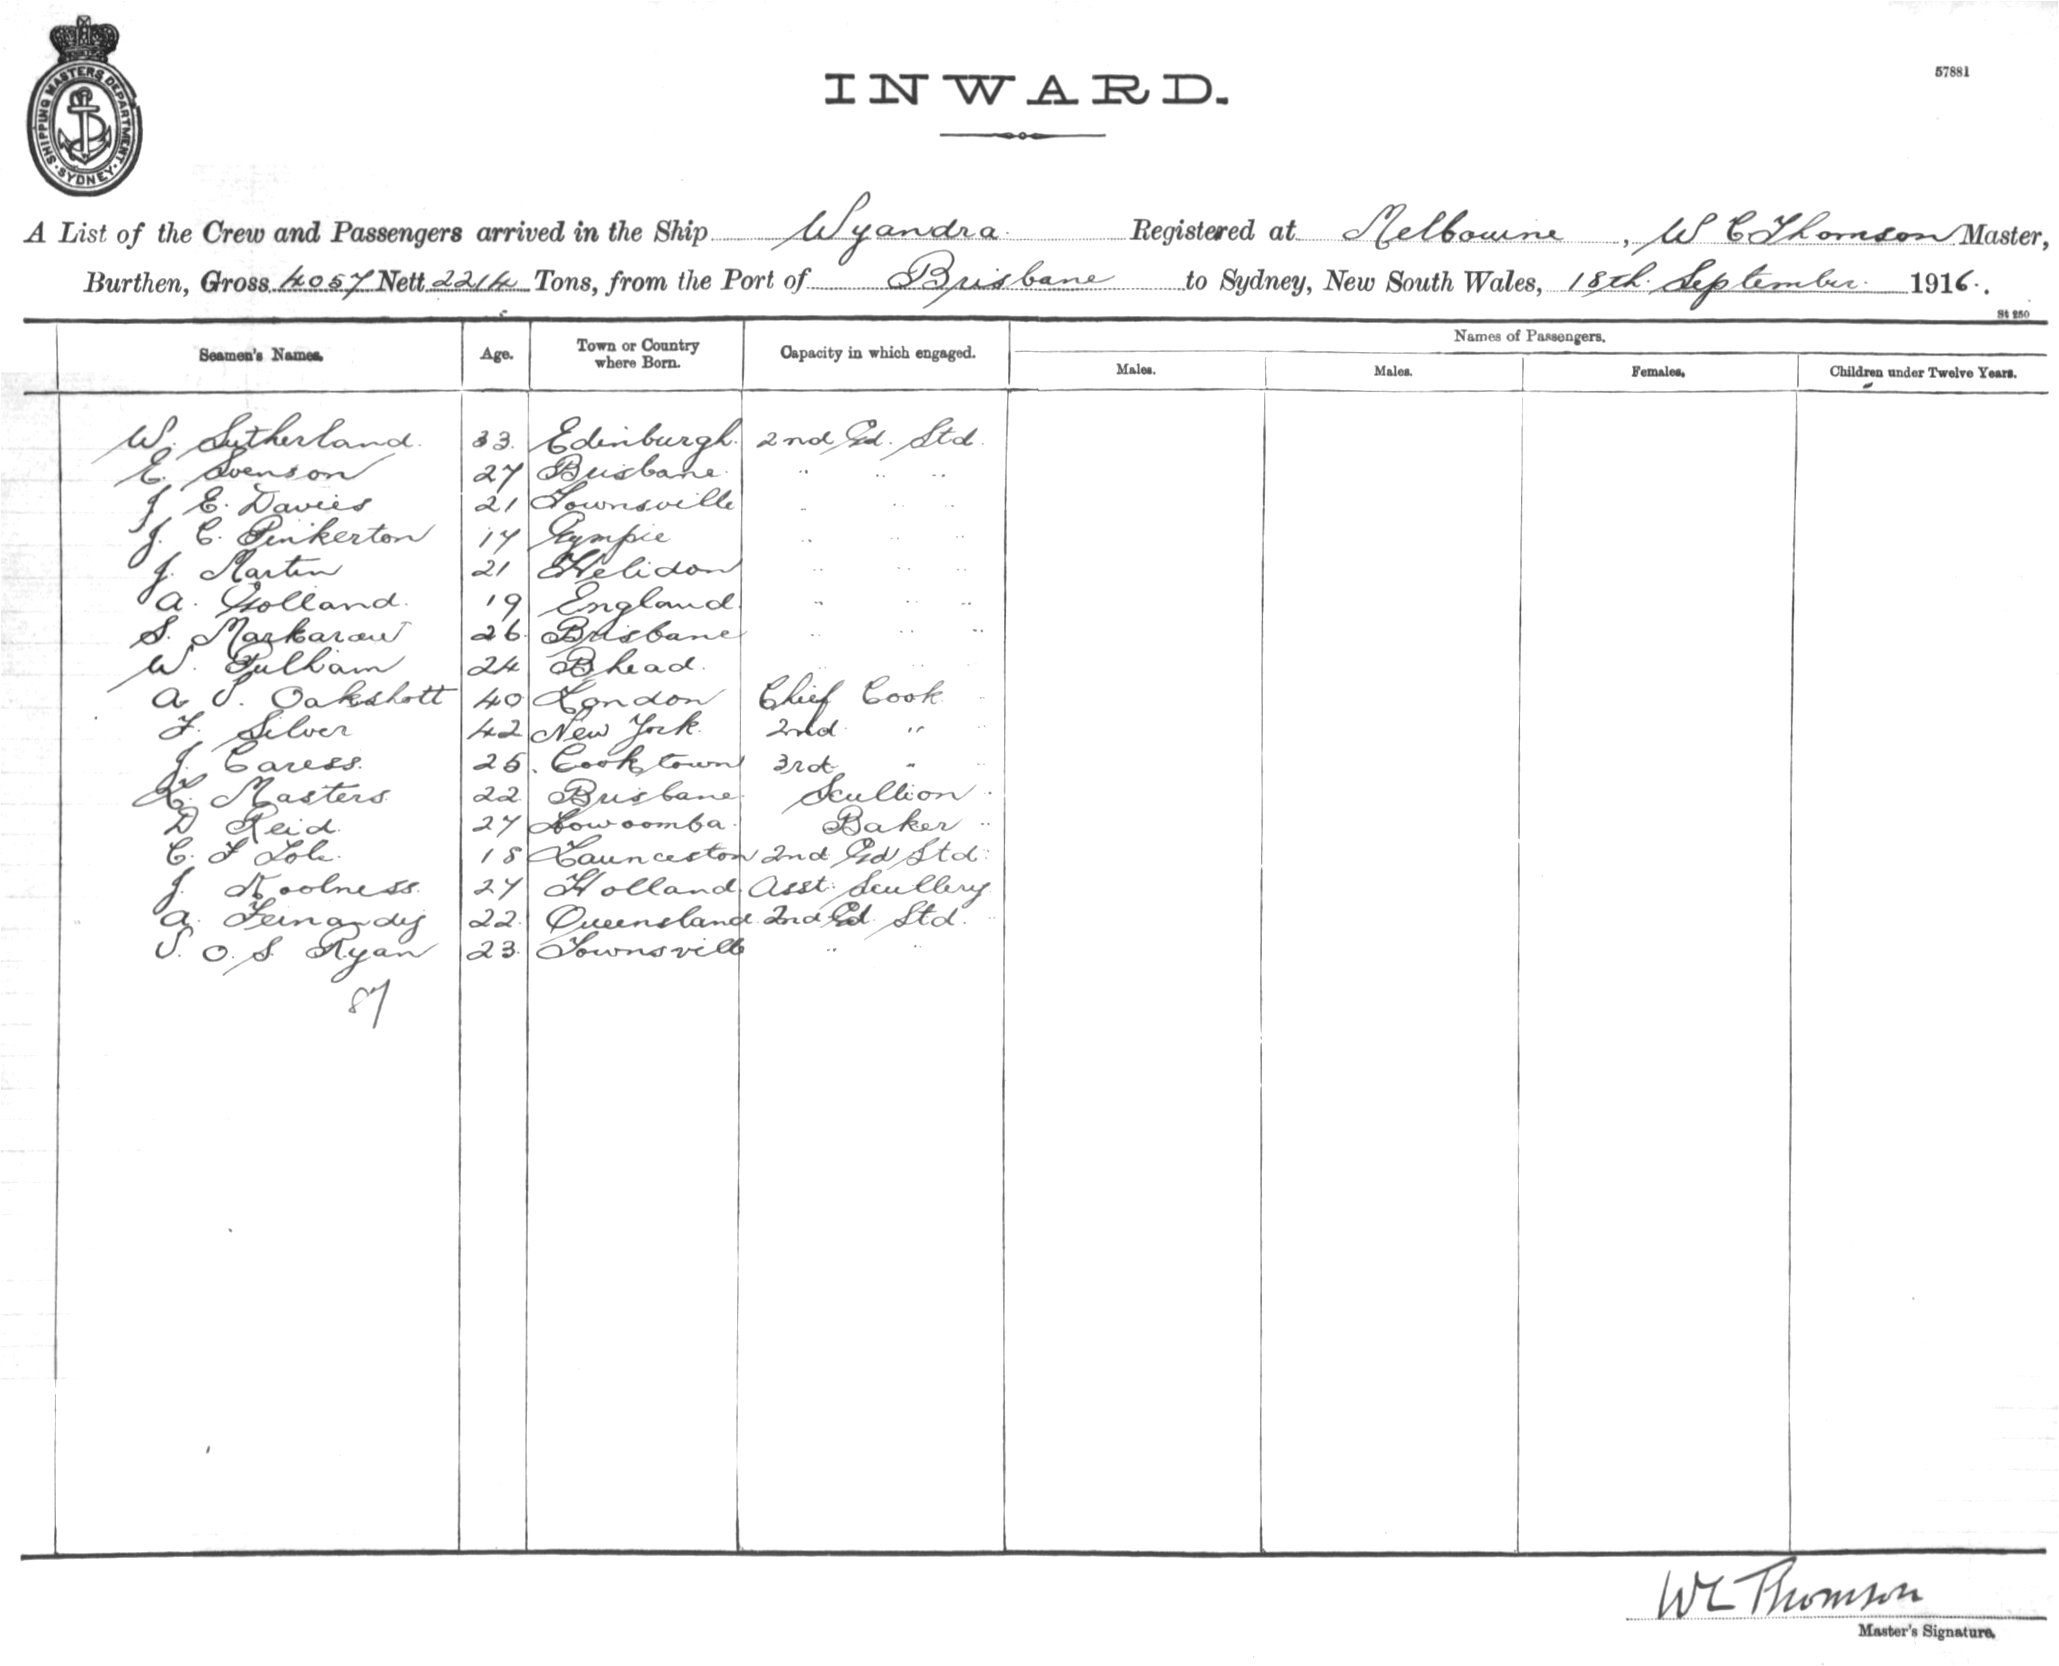 SHIPPING MASTERS DEPARTMENT. SYDNEY
INWARD.
57881
A List of the Crew and Passengers arrived in the Ship Wyandra Registered at Melbourne, W C Thomson Master,
Burthen, Gross 4057 Nett 2214 Tons, from the Port of Brisbane to Sydney, New South Wales, 18th September 1916.
St 250
Seamen's Names. Age. Town or Country where Born. Capacity in which engaged. Names of Passengers.
Males. Males. Females. Children under Twelve Years.
W. Sutherland. 33. Edinburgh. 2nd Gd. Std.
E. Svenson 27 Brisbane " " "
J E. Davies 21 Townsville " " "
J. C. Pinkerton 17 Gympie " " "
J. Martin 21 Helidon " " "
A. Golland. 19 England " " "
S. 26 Brisbane " " "
W. Pulham 24 B head. " " "
A S. Oakshott 40 London Chief Cook
F. Silver 42 New York 2nd "
J. Caress. 25. Cooktown 3rd "
Masters 22 Brisbane Scullion
D Reid. 27 Towoomba. Baker
C. F 18 Launceston 2nd Gd Std.
J. Koolness. 27 Holland Asst. Scullery
A. 22. Queensland 2nd Gd Std.
S. O. S. Ryan 23. Townsville " "
87
W C Thomson
Master's Signature.